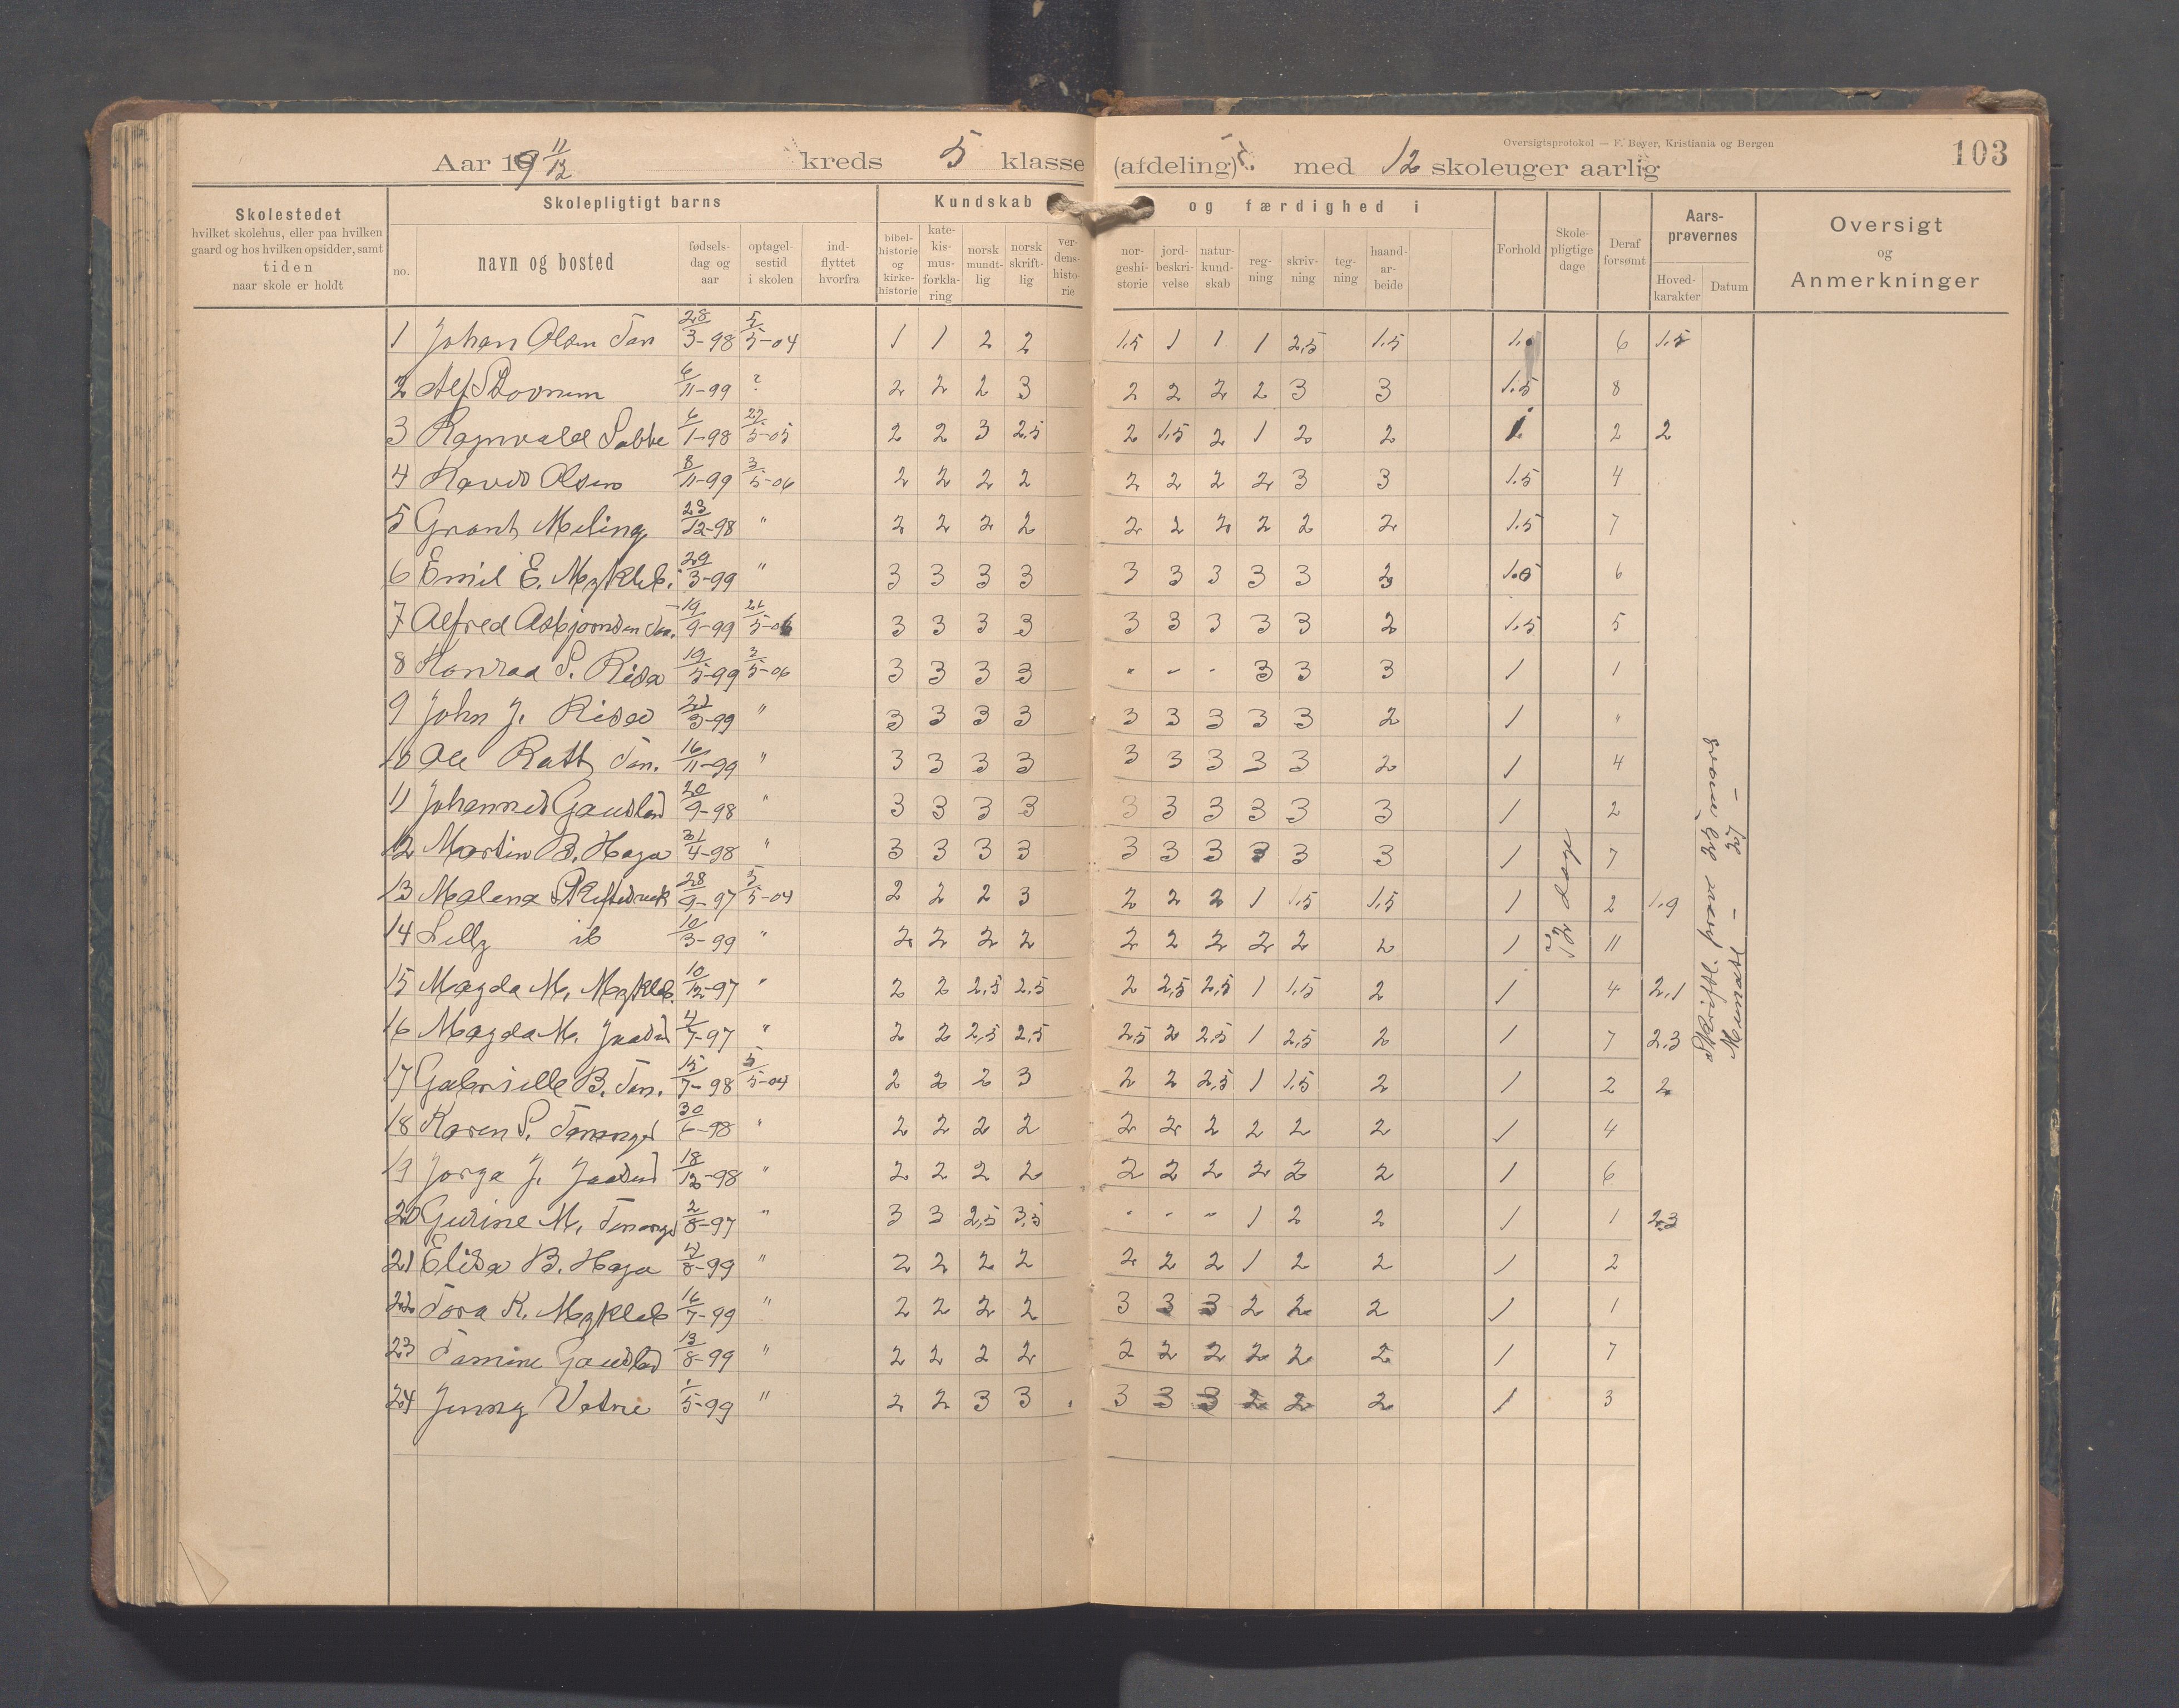 Oversigtsprotokol — F. Beyer, Kristiania og Bergen
103
Aar 19 11/12 kreds 5 klasse (afdeling) med 12 skoleuger aarlig
Skolestedet
hvilket skolehus, eller paa hvilken gaard og hos hvilken opsidder, samt tiden naar skole er holdt
Skolepligtigt barns
no. navn og bosted fødselsdag og aar optagelsestid i skolen indflyttet hvorfra
Kundskab og færdighed i
bibelhistorie og kirkehistorie katekismusforklaring norsk mundtlig norsk skriftlig verdenshistorie norgeshistorie jordbeskrivelse naturkundskab regning skrivning tegning haandarbeide
Forhold Skolepligtige dage Deraf forsømt
Aarsprøvernes
Hovedkarakter Datum
Oversigt og Anmerkninger
1 Johan Olsen Tan 28/3-98 5/5-04 1 1 2 2 1.5 1 1 1 2,5 1.5 6 1.5
2 Alf 6/11-99 ? 2 2 2 3 2 2 2 2 3 3 1.5 8
3 Ragnvald 6/1-98 22/5-05 2 2 3 2,5 2 1.5 2 1 2 2 2 2
4 Olsen 8/11-99 3/5-06 2 2 2 2 2 2 2 2 3 3 1.5 4
5 Grant Meling 23/12-98 " 2 2 2 2 2 2 2 2 2 2 1.5 7
6 Emil E. Mykleb. 29/3-99 " 3 3 3 3 3 3 3 3 3 6
7 Alfred Asbjørnsen Tan. 19/9-99 5-06 3 3 3 3 3 3 3 3 3 2 1.5 5
8 Konrad S. Risa 19/5-99 3/5-06 3 3 3 3 " - - 3 3 3 1 1
9 John J. Risa 3-99 " 3 3 3 3 3 3 3 3 3 2 1 "
10 Ole Rott Tan. 16/11-99 " 3 3 3 3 3 3 3 3 3 2 1 4
11 Johannes Gausland 20/9-98 " 3 3 3 3 3 3 3 3 3 3 1 2
12 Martin B. Haga 31/4-98 " 3 3 3 3 3 3 3 3 3 3 1 7
13 Malena 28/9-97 5/5-04 2 2 2 3 2 2 2 1 1.5 1.5 1 2 1.9
14 Lilly ib 10/3-99 " 2 2 2 2 2 2 2 2 2 2 1 11
15 Magda M. Mykleb. 10/12-97 " 2 2 2,5 2,5 2 2,5 2,5 1 1.5 2 1 4 2.1
16 Magda M. 4/7-97 " 2 2 2,5 2,5 2,5 2 2,5 1 2,5 2 1 7 2.3
17 Gabrielle B. Tan. 15/7-98 5/5-04 2 2 2 3 2 2 2,5 1 1.5 2 1 2 2
18 Karen S. Tananger 30/6-98 " 2 2 2 2 2 2 2 2 2 2 1 4
19 Jorga J. 18/12-98 " 2 2 2 2 2 2 2 2 2 2 1 6
20 Gurine M. Tananger 2/8-97 " 3 3 2,5 3,5 - - - 1 2 2 1 1 2.3
21 Elisa B. Haga 8-99 " 2 2 2 2 2 2 2 1 2 2 1 2
22 Tora K. Mykleb 16/7-99 " 2 2 2 2 3 3 3 2 2 2 1 1
23 Tamine Gausland 13/8-99 " 2 2 2 2 2 2 2 2 2 2 1 7
24 Jenny 1/5-99 " 2 2 3 3 3 3 3 2 2 2 1 3
72 dage
Skriftl. prøve 26 mars
Mundtl. - 27 -